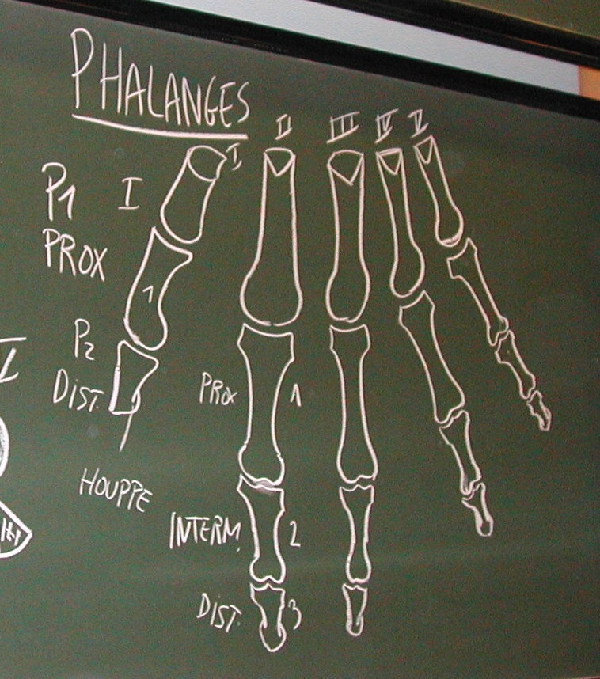 PHALANGES
I II III IV V
P1 I
PROX
1
P2
DIST.
HOUPPE
PROX 1
INTERM. 2
DIST. 3